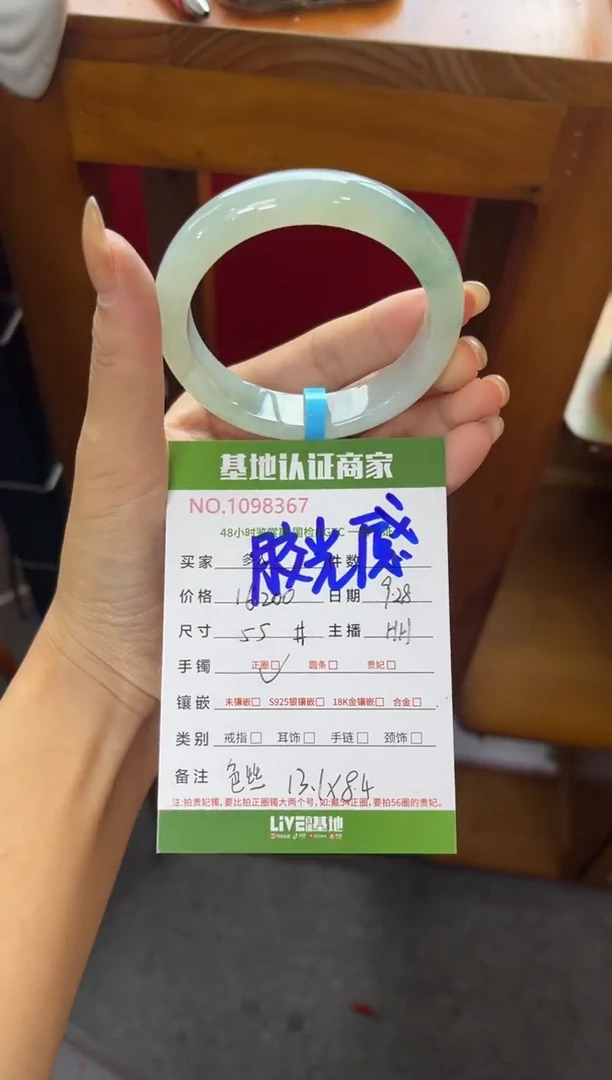 基地认证商家
NO.1098367
胶光感
48小时鉴赏期 国检
买家 多 件数
价格 16200 日期 9.28
尺寸 55 # 主播 HH
手镯 正圈□ 圆条□ 贵妃□
镶嵌 未镶嵌□ S925银镶嵌□ 18K金镶嵌□ 合金□
类别 戒指□ 耳饰□ 手链□ 颈饰□
备注 色丝 13.1X8.4
注:拍贵妃镯,要比拍正圈镯大两个号,如:戴54正圈,要拍56圈的贵妃。
LIVE 基地